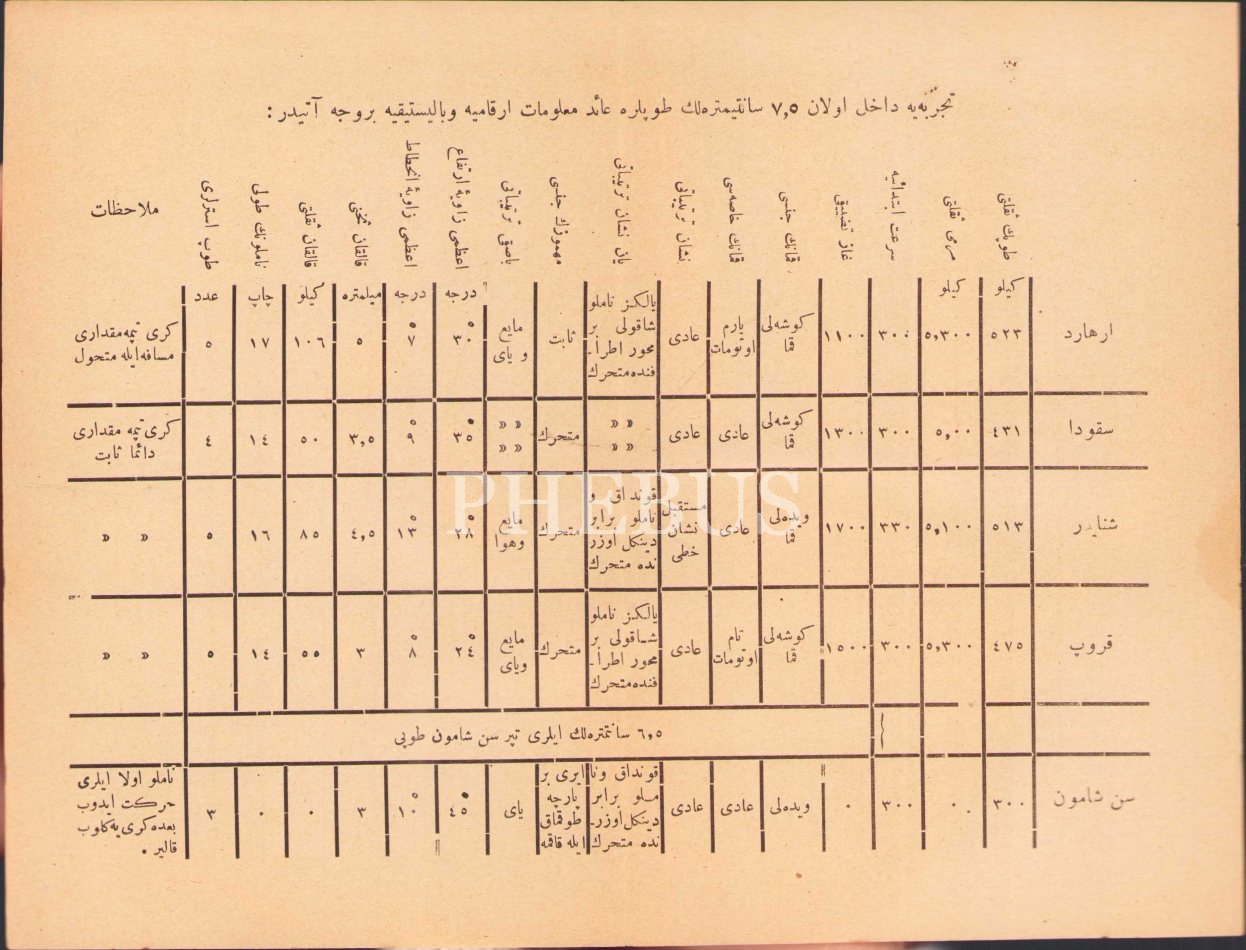 تجربه‌یه داخل اولان ٧,٥ سانتیمتره‌لك طوپلره عائد معلومات ارقامیه وبالیستیقیه بروجه آتیدر :
طوپك ثقلتی
مرمی ثقلتی
سرعت ابتدائیه
غاز تضییقی
قمانك جنسی
قمانك خاصه‌سی
نشان ترتیباتی
یان نشان ترتیباتی
مهموزك جنسی
یاصقی ترتیباتی
اعظمی زاویهٔ ارتفاع
اعظمی زاویهٔ انحطاط
قالقان ثخنی
قالقان ثقلتی
ناملونك طولی
طوپ استرلری
ملاحظات
كیلو كیلو درجه درجه میلمتره كیلو چاپ عدد
ارهارد ٥٢٣ ٥,٣٠٠ ٣٠٠ ١١٠٠ كوشه‌لی قما یارم اوتومات عادی یالكز ناملو شاقولی بر محور اطرا- فنده متحرك ثابت مایع و یای ٣٠ ٧ ٥ ١٠٦ ١٧ ٥ كری تپمه مقداری مسافه ایله متحول
سقودا ٤٣١ ٥,٠٠ ٣٠٠ ١٣٠٠ كوشه‌لی قما عادی عادی » » » » متحرك » » » » ٣٥ ٩ ٣,٥ ٥٠ ١٤ ٤ كری تپمه مقداری دائما ثابت
شنایدر ٥١٣ ٥,١٠٠ ٣٣٠ ١٧٠٠ ویده‌لی قما عادی مستقبل نشان خطی قونداق و ناملو برابر دینكل اوزر- نده متحرك متحرك مایع وهوا ٢٨ ١٣ ٤,٥ ٨٥ ١٦ ٥ » »
قروپ ٤٧٥ ٥,٣٠٠ ٣٠٠ ١٥٠٠ كوشه‌لی قما تام اوتومات عادی یالكز ناملو شاقولی بر محور اطرا- فنده متحرك متحرك مایع ویای ٢٤ ٨ ٣ ٥٥ ١٤ ٥ » »
٦,٥ سانتمتره‌لك ایلری تپر سن شامون طوپی
سن شامون ٣٠٠ ٠ ٣٠٠ ٠ ویده‌لی عادی عادی قونداق ونا- ملو برابر دینكل اوزر- نده متحرك ایری بر پارچه طوقماق ایله قاقمه یای ٤٥ ١٠ ٣ ٠ ٠ ٣ ناملو اولا ایلری حركت ایدوب بعده كری یه كلوب قالیر .
PHEBUS